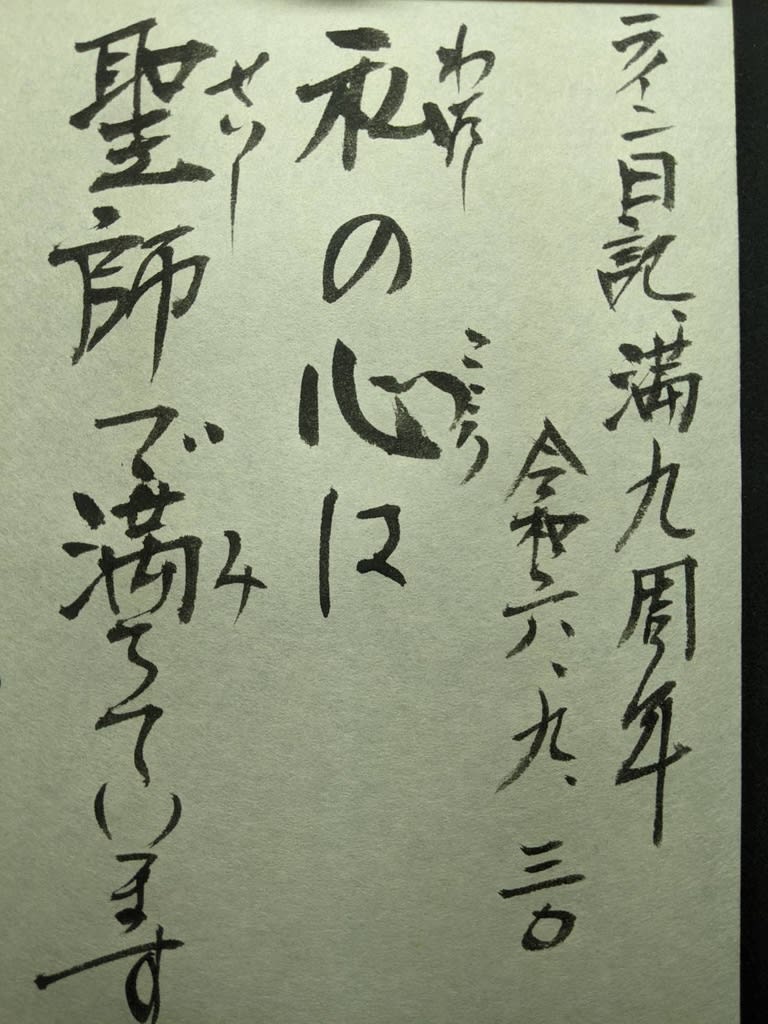 ライン日記、満九周年
令和六、九、三〇
わたし
私の心は
こころ
せいし
聖師で満ちています
み